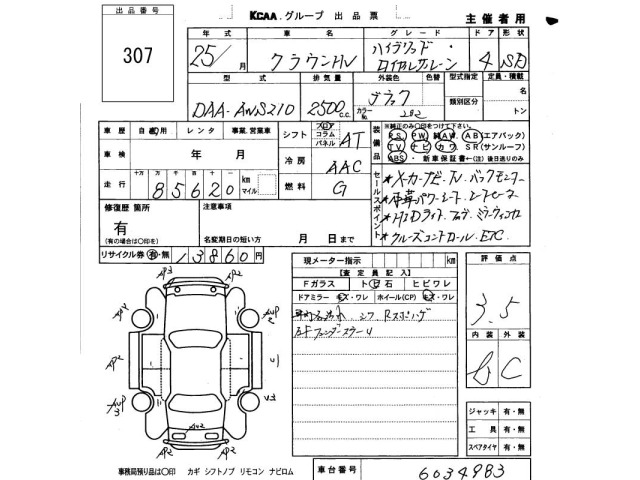 出品番号
307
KCAA.グループ 出品票
主催者用
年式 車名 グレード ドア 形状
25/ 月 クラウンHV ハイブリッド・ロイヤルサルーン 4 SD
型式 排気量 外装色 色替 型式指定 定員・積載
DAA-AWS210 2500 c.c. ブラック カラーNo. 202 類別区分 名 トン
車歴 自家用 レンタ 事業.営業車
シフト フロア コラム パネル AT
車検 年 月
冷房 AAC
走行 十万 万 千 百 十 85620 km マイル
燃料 G
装備品
※純正のみ○印をつけて下さい。
PS PW AW AB(エアバック)
TV ナビ カワ SR(サンルーフ)
ABS ・新車保証書←(注)後日送りのみ
セールスポイント
*メーカーナビ.TV.バックモニター
*本革パワーシート シートヒーター
*HIDライト
*クルーズコントロール.ETC
修復歴 箇所
有
(有の場合は○印を)
注意事項
名変期日の短い方 月 日まで
リサイクル券 有・無 13860円
現メーター指示 km
【査定員記入】
Fガラス トビ石 ヒビワレ
ドアミラー キズ・ワレ ホイール(CP) キズ・ワレ
評価点
3.5
内装 外装
C
ジャッキ 有・無
工具 有・無
スペアタイヤ 有・無
AP3
AP2
AP2
AP2
事務局預り品は○印 カギ シフトノブ リモコン ナビロム
車台番号 6034983